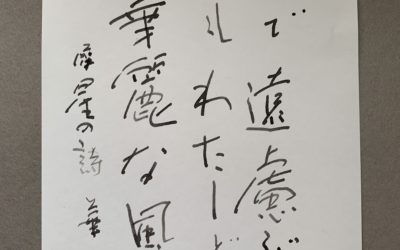 で遠慮
わたし
華麗な風
星の詩 華